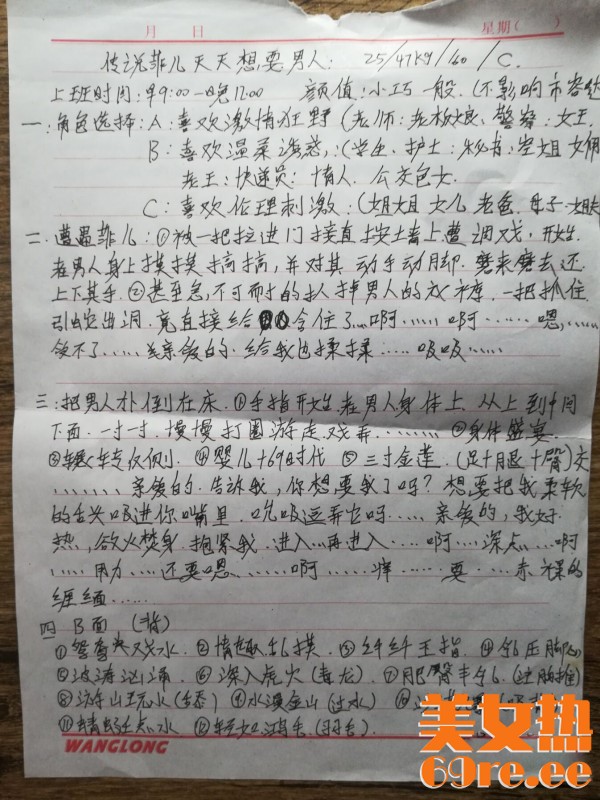 月 日 星期( )
传说菲儿天天想要男人: 25/47kg/160/C.
上班时间:早9:00—晚12:00 颜值:小巧一般.(不影响市容
一:角色选择:A:喜欢激情狂野(老师:老板娘、警察:女王.
B:喜欢温柔诱惑:(学生、护士:秘书:空姐女佣
老王:快递员:情人.公交色女.
C:喜欢伦理刺激:(姐姐 女儿 老爸.母子
二.遭遇菲儿:①被一把拉进门 按墙上遭调戏,开始
在男人身上摸摸搞搞,并对其动手动脚.磨来磨去还
上下其手.②甚至急不可耐的 男人的衣裤.一把抓住
引蛇出洞.竟直接给 含住了…啊…… 啊……嗯,……
受不了……亲爱的.给我也揉揉……吸吸……
三:把男人扑倒在床.①手指开始在男人身体上.从上到中间
下面.一寸一寸.慢慢打圈游走戏弄……… ②身体盛宴
③辗转反侧.④婴儿+69时代 ⑤三寸金莲.(足+腿+臀)交
………亲爱的.告诉我,你想要我了吗?想要把我柔软
的舌头吸进你嘴里.吮吸逗弄它吗……亲爱的,我好
热,欲火焚身.抱紧我.进入…再进入……啊…深点…啊
…用力…还要嗯……啊……要…赤裸的
缠绵……
四 B面 (背)
①鸳鸯戏水.②情趣乱摸 ③纤纤玉指.④
⑤波涛汹涌 ⑥深入虎穴(毒龙)⑦
⑧游山玩水(舔)⑨水漫金山(过水)
⑪蜻蜓点水 ⑫
WANGLONG
美女热
69re.ee